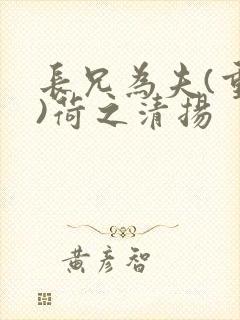 長兄為夫(重
)荷之清揚
黃彥智